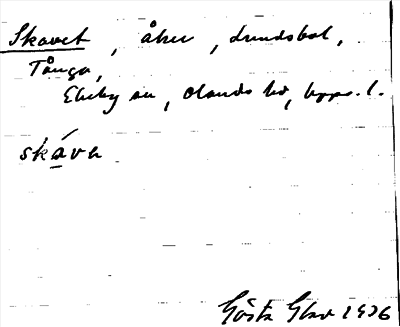 Skavet, åker, Lundsbol,
Tånga,
Ekeby sn, Olands hd, Upps. l.
skáve
Gösta Glad 1936